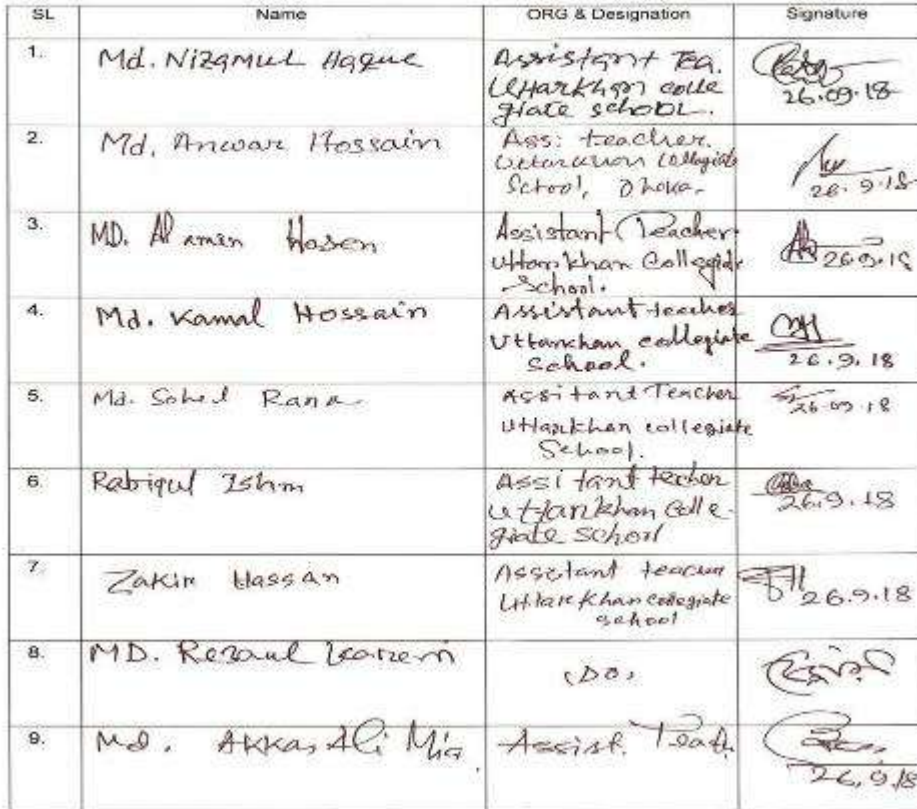 SL Name ORG & Designation Signature
1. Md. Nizamul Haque Assistant Tea.
Uttarkhan colle
giate school.
26.09.18
2. Md. Anwar Hossain Ass: teacher.
Uttarakhan Collegiate
School, Dhaka.
26.9.18
3. MD. Al amin Hosen Assistant Teacher
Uttarkhan Collegiate
School.
26.9.18
4. Md. Kamal Hossain Assistant teacher
Uttarkhan collegiate
School.
26.9.18
5. Md. Sohel Rana Assitant Teacher
Uttarkhan collegiate
School.
26.09.18
6. Rabiqul Islam Assi tant techer
Uttarkhan Colle-
giate School
26.9.18
7. Zakir Hassan Assistant teacher
Uttarkhan collegiate
school
26.9.18
8. MD. Rezaul Karem (DO)
9. Md. Akkas Ali Mia. Assist. Teach.
26.9.18